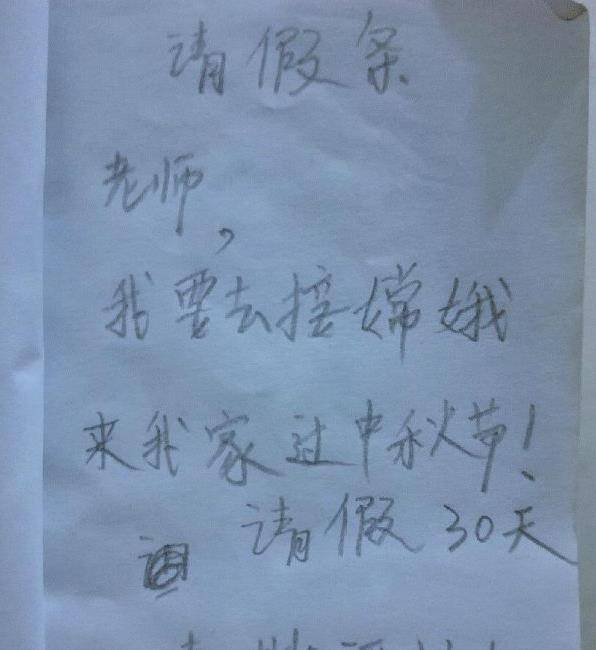 请假条
老师，
我要去接嫦娥
来我家过中秋节！
请假30天